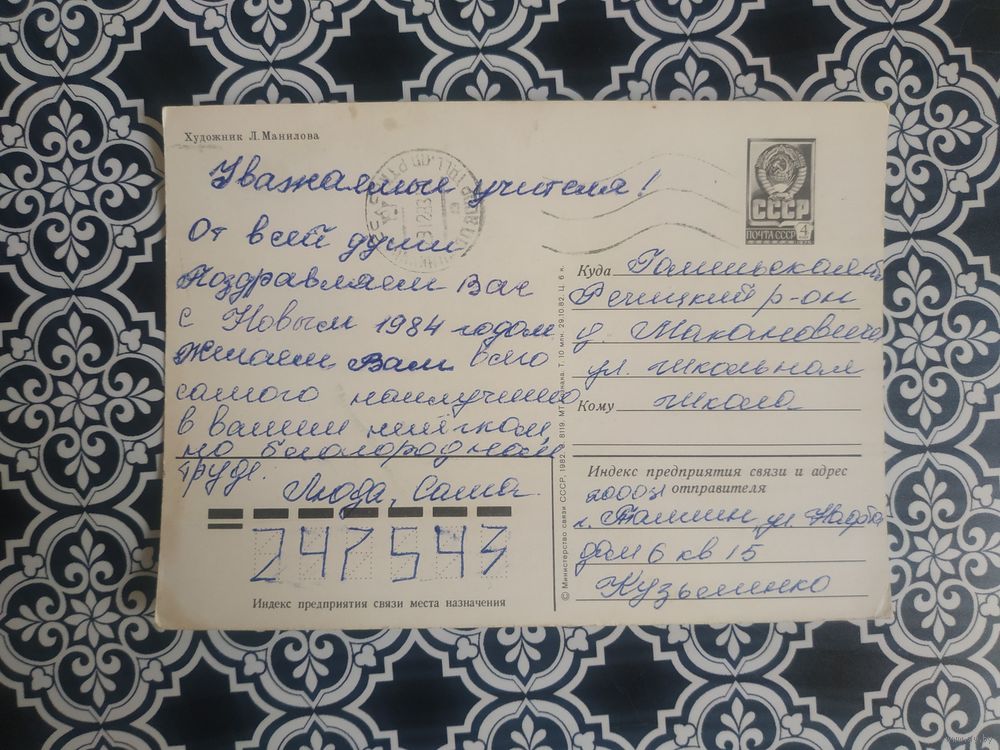 Художник Л. Манилова
Уважаемые учителя!
От всей души
Поздравляем Вас
с Новым 1984 годом
Желаем Вам всего
самого наилучшего
в вашем нелёгком,
но благородном
труде.
Люда, Саша.
247543
Индекс предприятия связи места назначения
© Министерство связи СССР, 1982. 8119. МТ Гознака. Т. 10 млн. 29.10.82. Ц. 6 к.
СССР
ПОЧТА СССР 4
Куда Гомельская
Речицкий р-он
ул. Школьная
Кому Школа
Индекс предприятия связи и адрес
отправителя
дом 6 кв 15
Кузьменко